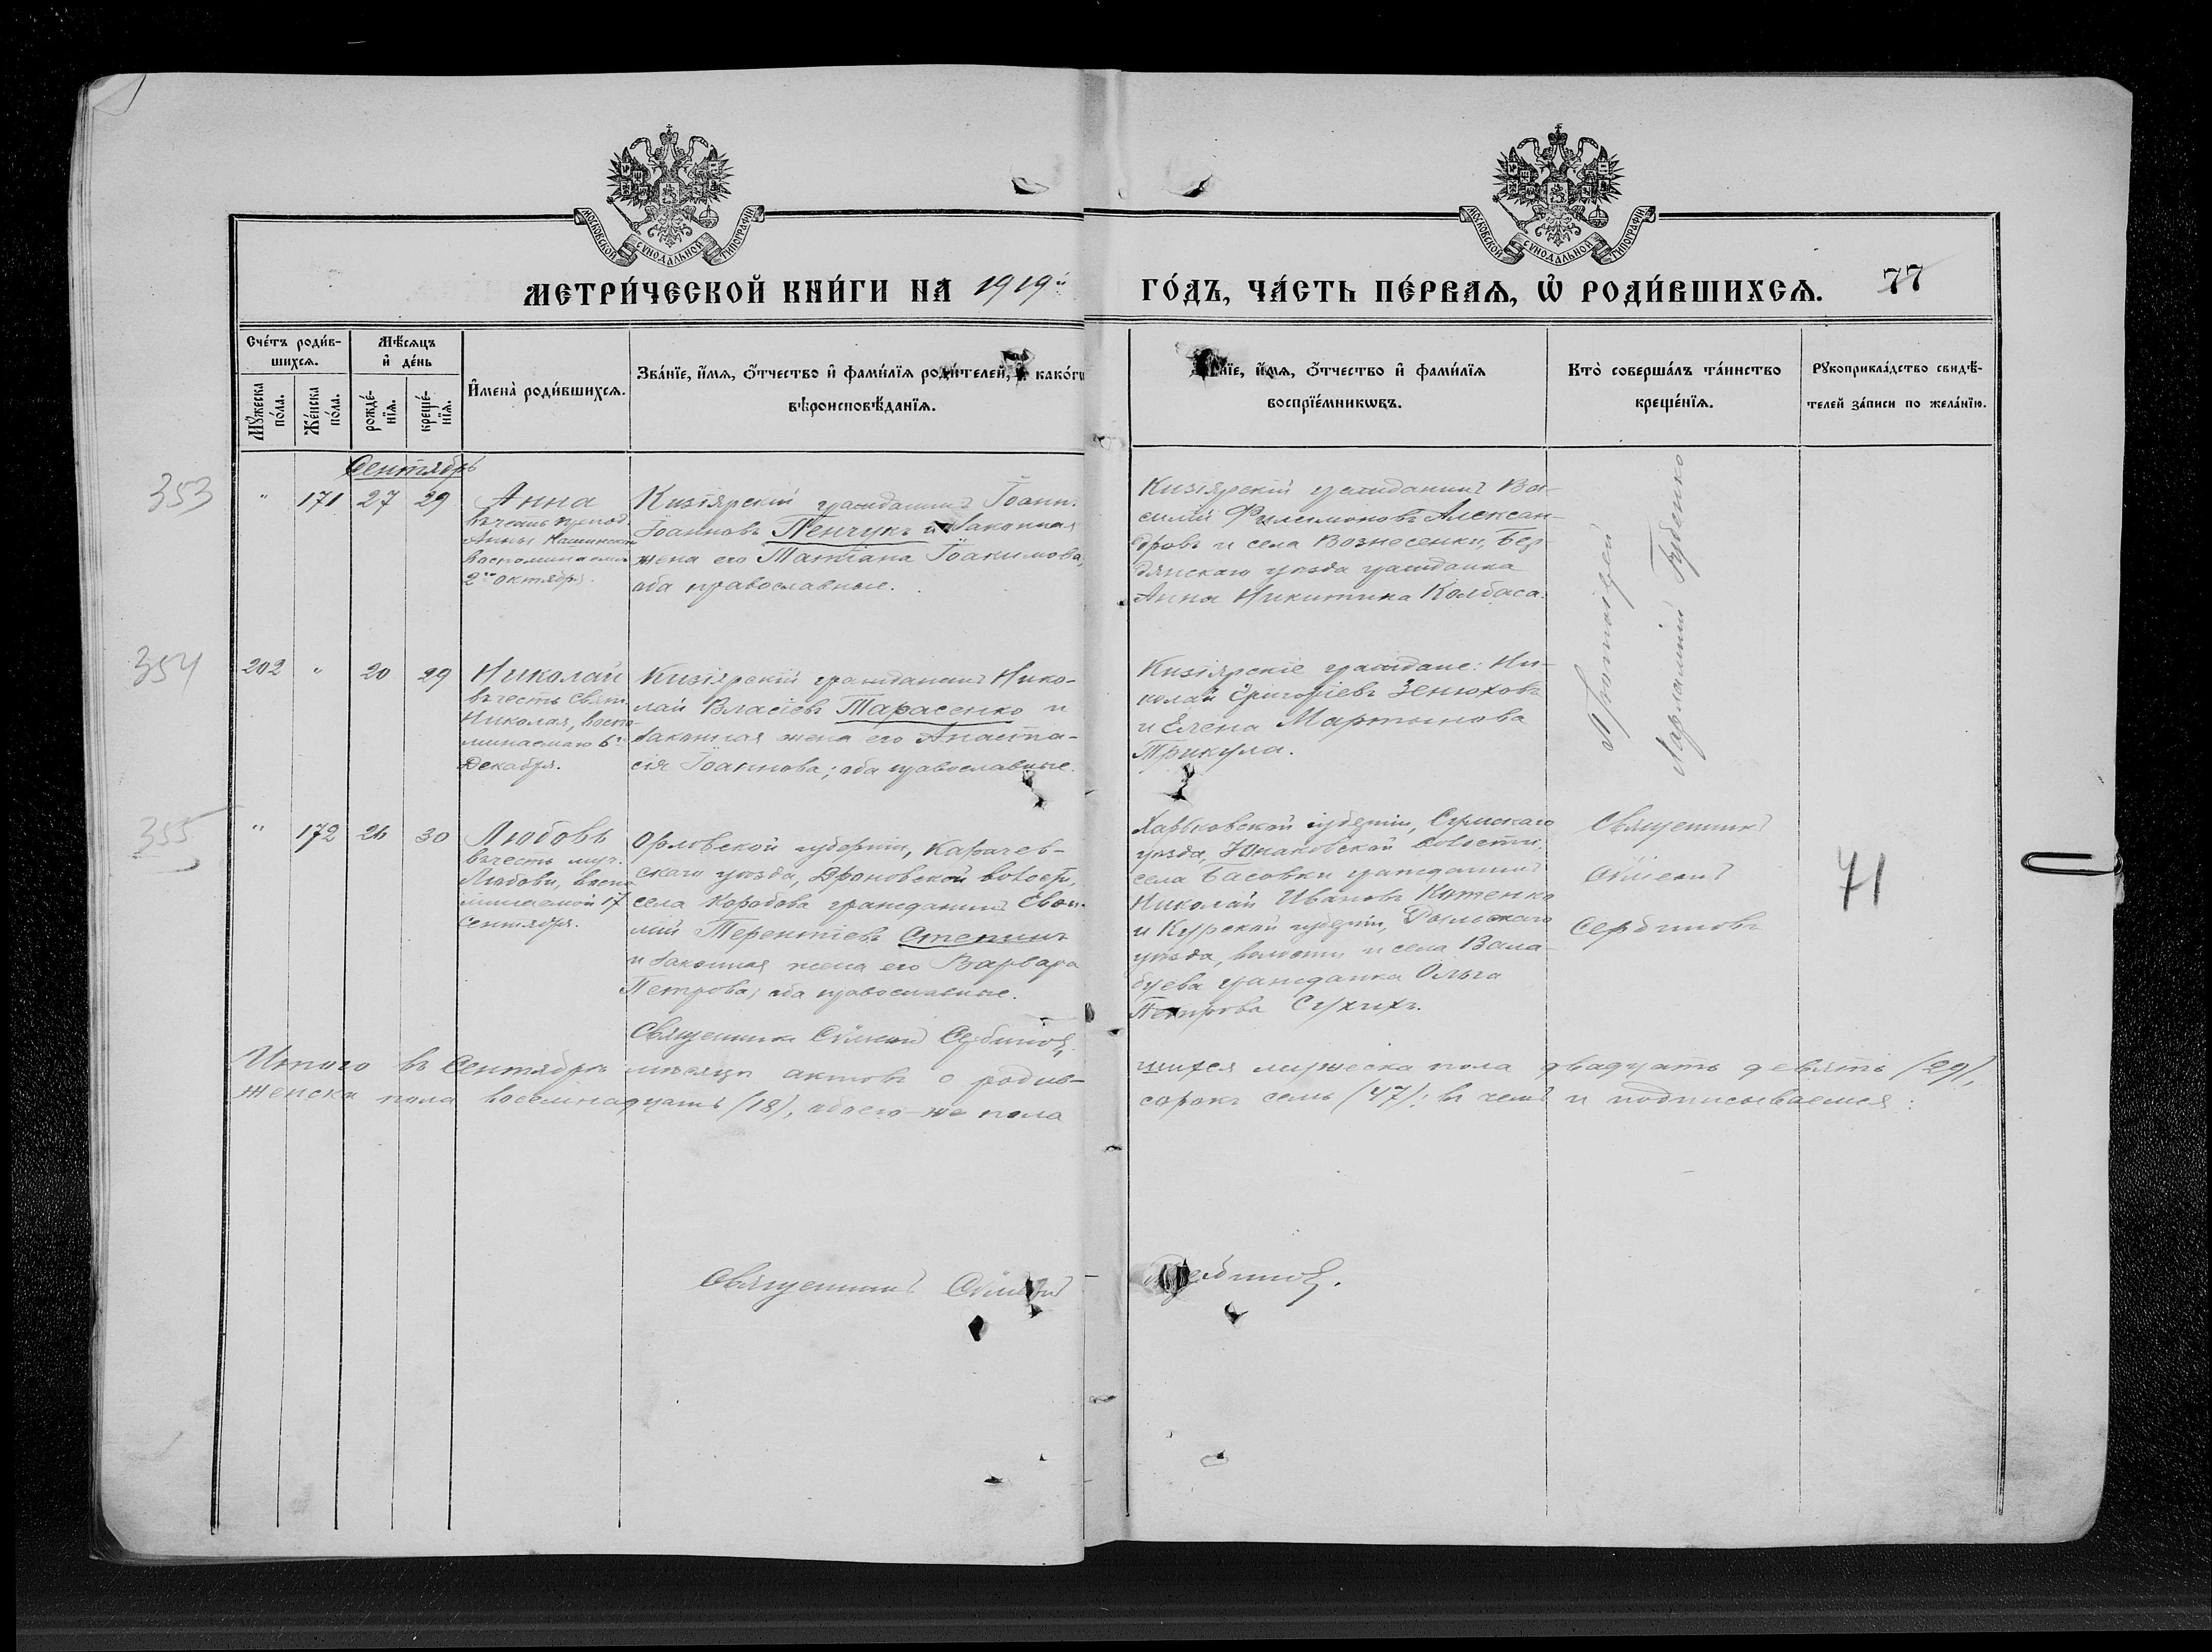 МОСКОВСКОЙ СѴНОДАЛЬНОЙ ТИПОГРАФІИ
МОСКОВСКОЙ СѴНОДАЛЬНОЙ ТИПОГРАФІИ
МЕТРИ́ЧЕСКОЙ КНИ́ГИ НА 1919й ГО́ДЪ, ЧА́СТЬ ПЕ́РВАѦ, Ѡ҆ РОДИ́ВШИХСѦ. 77
Сче́тъ роди́в-
шихсѧ.
Мꙋ́жеска по́ла.
Же́нска по́ла.
Мѣ́сѧцъ
и҆ де́нь
рожде́-
нїѧ.
креще́-
нїѧ.
И҆мена̀ роди́вшихсѧ.
Зва́нїе, и҆́мѧ, ѻ҆́тчество и҆ фами́лїѧ роди́телей, и҆ како́гѡ
вѣроисповѣ́данїѧ.
и҆́мѧ, ѻ҆́тчество и҆ фами́лїѧ
воспрїе́мникѡвъ.
Кто̀ соверша́лъ та́инство
креще́нїѧ.
Рꙋкоприкла́дство свидѣ́-
телей за́писи по жела́нїю.
Сентябрь
353 " 171 27 29 Анна
въ честь препод.
Анны Кашинской
воспоминаемой
2го октября.
Кизіярскій гражданинъ Іоаннъ
Іоанновъ Пенчукъ и законная
жена его Татіана Іоакимова,
оба православные.
Кизіярскій гражданинъ Ва-
силій Филимоновъ Алексан-
дровъ и села Вознесенки, Бер-
дянскаго уѣзда гражданка
Анна Никитина Колбаса.
Протоіерей
Варлаамій Губенко
354 202 " 20 29 Николай
въ честь Свят.
Николая, воспо-
минаемаго 6го
декабря.
Кизіярскій гражданинъ Нико-
лай Власіевъ Тарасенко и
законная жена его Анаста-
сія Іоаннова; оба православные.
Кизіярскіе граждане: Ни-
колай Григоріевъ Зенюховъ
и Елена Мартынова
Трикула.
355 " 172 26 30 Любовь
въ честь муч.
Любови, воспо-
минаемой 17
сентября.
Орловской губерніи, Карачев-
скаго уѣзда, Дроновской волост.,
села Коробова гражданинъ Евѳи-
мій Терентіевъ Степинъ
и законная жена его Варвара
Петрова; оба православные.
Священникъ Сѵмеонъ Сербиновъ
Харьковской губерніи, Сумскаго
уѣзда, Юнаковской волости,
села Басовки гражданинъ
Николай Ивановъ Котенко
и Курской губерніи, Рыльскаго
уѣзда, волости и села Вала-
буева гражданка Ольга
Петрова Сухихъ.
Священникъ
Сѵмеонъ
Сербиновъ
71
Итого въ Сентябрѣ мѣсяцѣ актовъ о родив-
шихся мужеска пола двадцать девять (29),
женска пола восемнадцать (18), обоего-же пола
сорокъ семь (47); въ чемъ и подписываемся:
Священникъ Сѵмеонъ Сербиновъ.